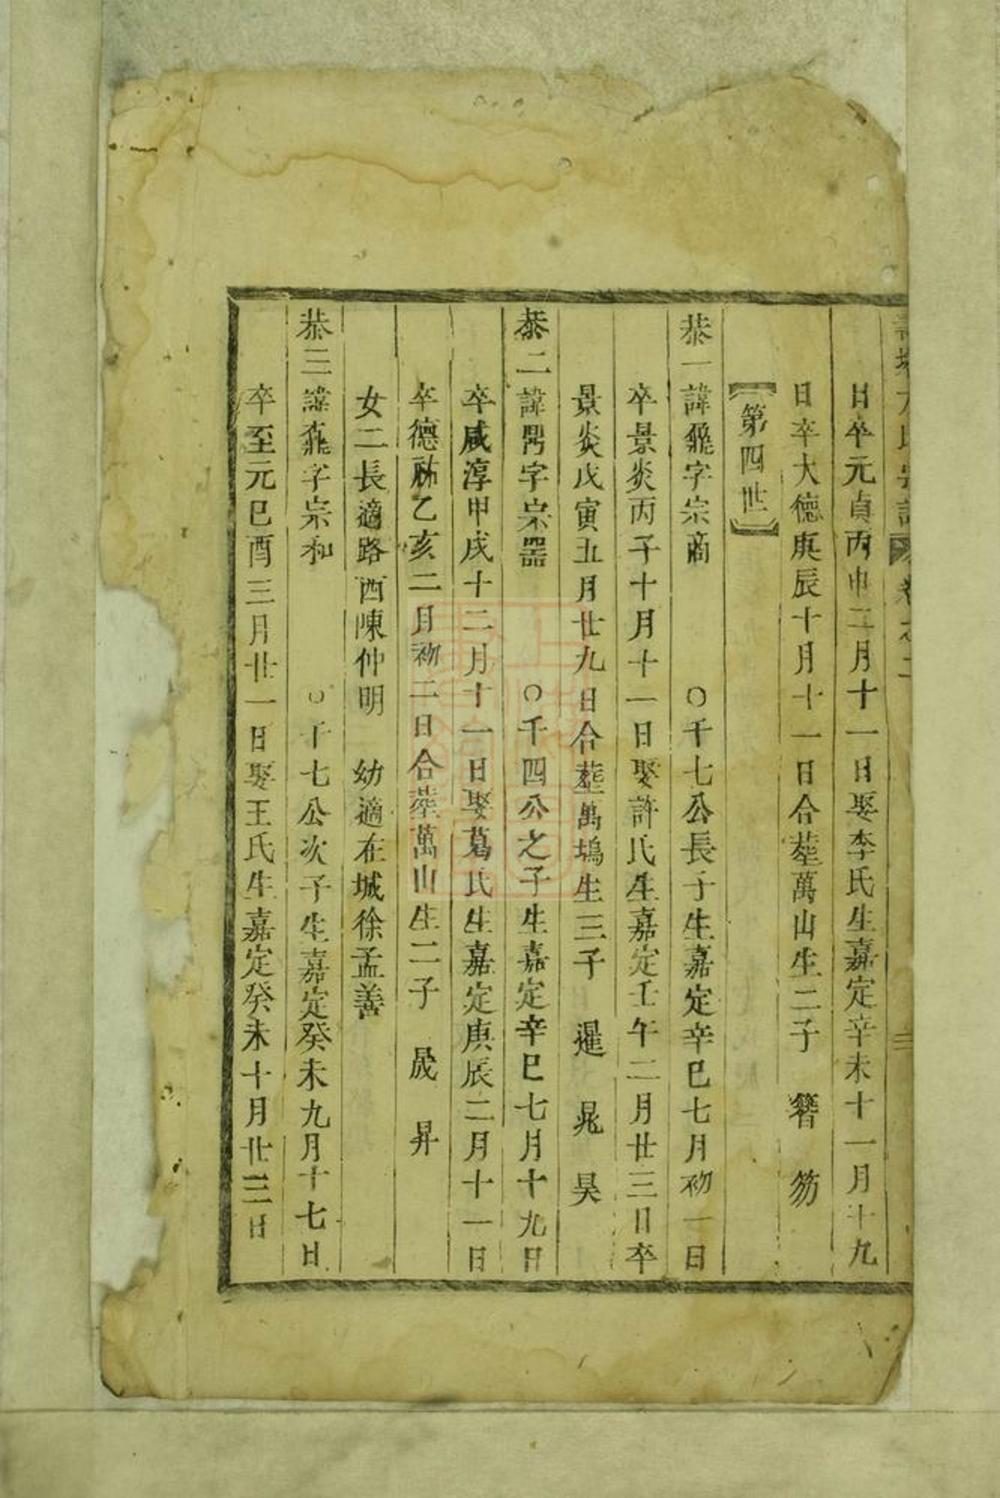 日卒元貞丙申二月十一日娶李氏生嘉定辛未十一月十九
日卒大德庚辰十月十一日合塟萬山生二子 簪 笏
【第四世】
恭一諱字宗商 ○千七公長子生嘉定辛巳七月初一日
卒景炎丙子十月十一日娶許氏生嘉定壬午二月廿三日卒
景炎戊寅五月廿九日合塟萬塢生三子 暹 晁 昊
恭二諱字宗器 ○千四公之子生嘉定辛巳七月十九日
卒咸淳甲戌十二月十一日娶葛氏生嘉定庚辰二月十一日
卒德祐乙亥二月初二日合塟萬山生二子 晟 昇
女二長適路西陳仲明 幼適在城徐孟善
恭三諱字宗和 ○千七公次子生嘉定癸未九月十七日
卒至元己酉三月廿一日娶王氏生嘉定癸未十月廿三日